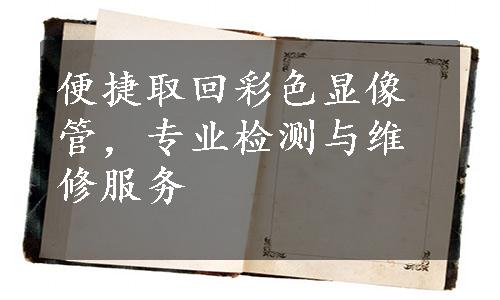 便捷取回彩色显像
管，专业检测与维
修服务